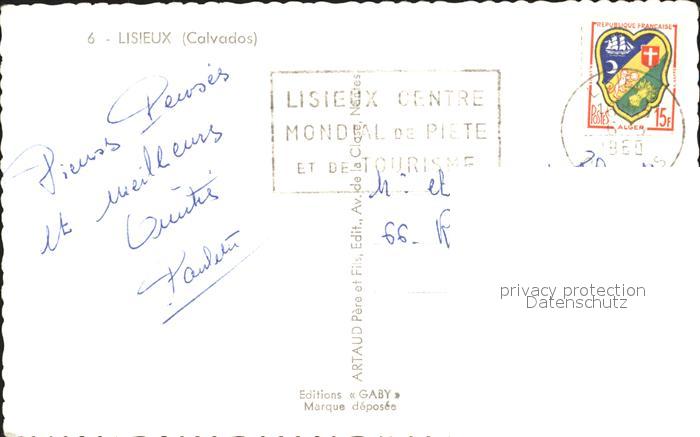 6 - LISIEUX (Calvados)
REPUBLIQUE FRANÇAISE
POSTES 15F
ALGER
LISIEUX CENTRE
MONDIAL DE PIETE
ET DE TOURISME
1960
Pieuses Pensés
et meilleurs
Amitiés
Paulette
Mr et
66 -
ARTAUD Père et Fils, Edit., Av. de la Close, Nantes
privacy protection
Datenschutz
Editions « GABY »
Marque déposée